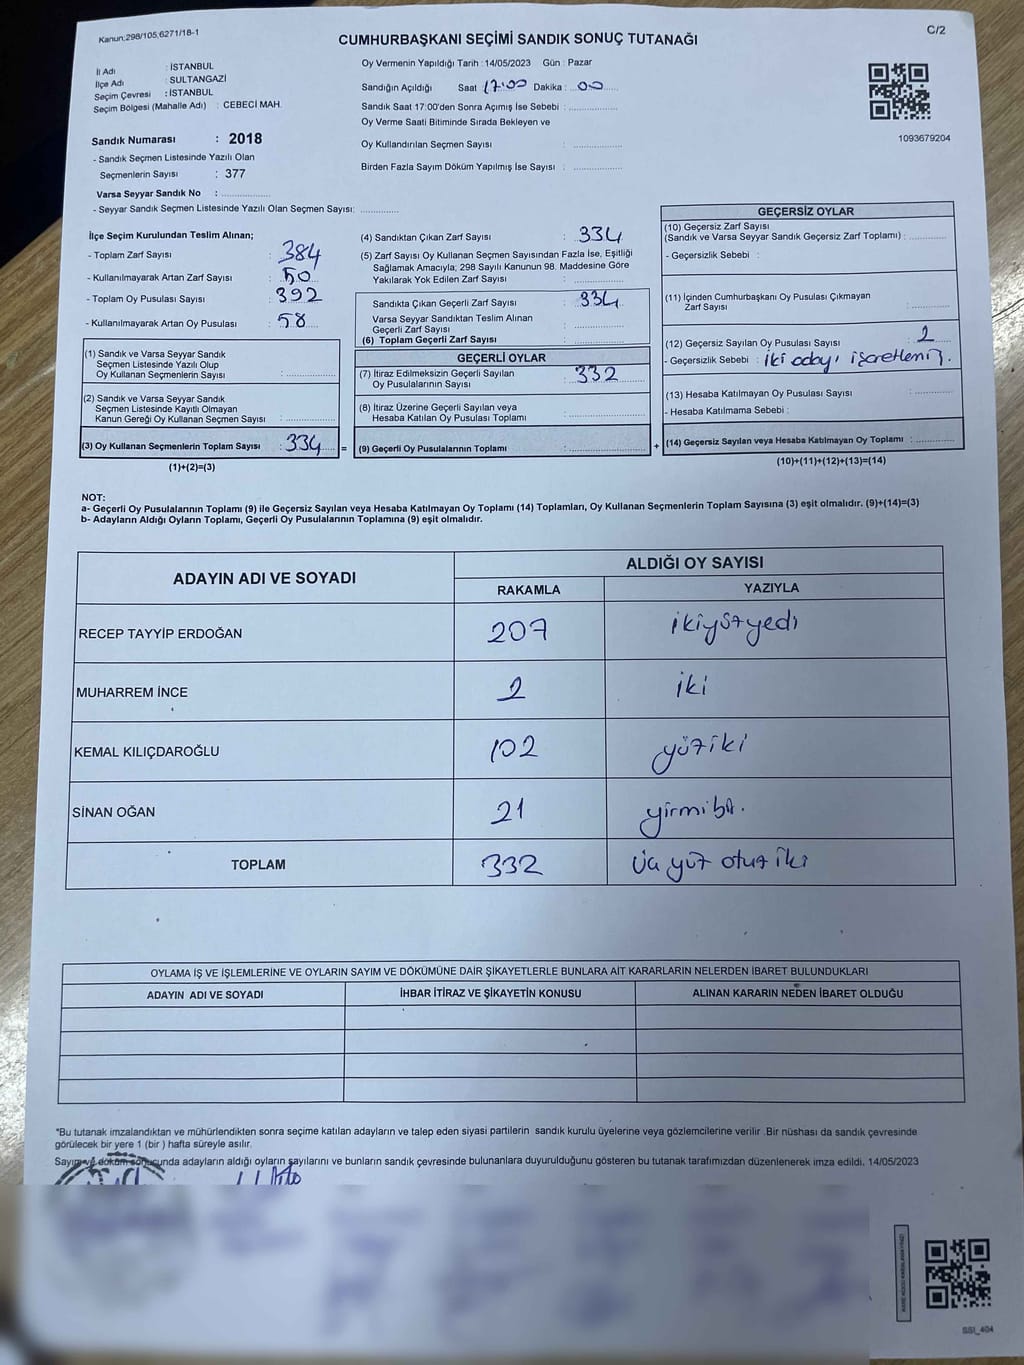 Kanun:298/105,6271/18-1
C/2
CUMHURBAŞKANI SEÇİMİ SANDIK SONUÇ TUTANAĞI
İl Adı : İSTANBUL
İlçe Adı : SULTANGAZİ
Seçim Çevresi : İSTANBUL
Seçim Bölgesi (Mahalle Adı) : CEBECİ MAH.
Sandık Numarası : 2018
- Sandık Seçmen Listesinde Yazılı Olan
Seçmenlerin Sayısı : 377
Varsa Seyyar Sandık No : ..................
- Seyyar Sandık Seçmen Listesinde Yazılı Olan Seçmen Sayısı: ..............
Oy Vermenin Yapıldığı Tarih : 14/05/2023 Gün : Pazar
Sandığın Açıldığı Saat 17:00 Dakika : 00
Sandık Saat 17:00'den Sonra Açımış İse Sebebi : ..................
Oy Verme Saati Bitiminde Sırada Bekleyen ve
Oy Kullandırılan Seçmen Sayısı : ..................
Birden Fazla Sayım Döküm Yapılmış İse Sayısı : ..................
1093679204
İlçe Seçim Kurulundan Teslim Alınan;
- Toplam Zarf Sayısı : 384
- Kullanılmayarak Artan Zarf Sayısı : 50
- Toplam Oy Pusulası Sayısı : 392
- Kullanılmayarak Artan Oy Pusulası : 58
(1) Sandık ve Varsa Seyyar Sandık
Seçmen Listesinde Yazılı Olup
Oy Kullanan Seçmenlerin Sayısı : ..................
(2) Sandık ve Varsa Seyyar Sandık
Seçmen Listesinde Kayıtlı Olmayan
Kanun Gereği Oy Kullanan Seçmen Sayısı : ..................
(3) Oy Kullanan Seçmenlerin Toplam Sayısı : 334 =
(1)+(2)=(3)
(4) Sandıktan Çıkan Zarf Sayısı : 334
(5) Zarf Sayısı Oy Kullanan Seçmen Sayısından Fazla İse, Eşitliği
Sağlamak Amacıyla; 298 Sayılı Kanunun 98. Maddesine Göre
Yakılarak Yok Edilen Zarf Sayısı : ..................
Sandıkta Çıkan Geçerli Zarf Sayısı : 334
Varsa Seyyar Sandıktan Teslim Alınan
Geçerli Zarf Sayısı : ..................
(6) Toplam Geçerli Zarf Sayısı : ..................
GEÇERLİ OYLAR
(7) İtiraz Edilmeksizin Geçerli Sayılan
Oy Pusulalarının Sayısı : 332
(8) İtiraz Üzerine Geçerli Sayılan veya
Hesaba Katılan Oy Pusulası Toplamı : ..................
(9) Geçerli Oy Pusulalarının Toplamı : .................. +
GEÇERSİZ OYLAR
(10) Geçersiz Zarf Sayısı
(Sandık ve Varsa Seyyar Sandık Geçersiz Zarf Toplamı) : .............
- Geçersizlik Sebebi :
(11) İçinden Cumhurbaşkanı Oy Pusulası Çıkmayan
Zarf Sayısı : .............
(12) Geçersiz Sayılan Oy Pusulası Sayısı : 2
- Geçersizlik Sebebi : iki adayı işaretlemiş.
(13) Hesaba Katılmayan Oy Pusulası Sayısı : .............
- Hesaba Katılmama Sebebi :
(14) Geçersiz Sayılan veya Hesaba Katılmayan Oy Toplamı : .............
(10)+(11)+(12)+(13)=(14)
NOT:
a- Geçerli Oy Pusulalarının Toplamı (9) ile Geçersiz Sayılan veya Hesaba Katılmayan Oy Toplamı (14) Toplamları, Oy Kullanan Seçmenlerin Toplam Sayısına (3) eşit olmalıdır. (9)+(14)=(3)
b- Adayların Aldığı Oyların Toplamı, Geçerli Oy Pusulalarının Toplamına (9) eşit olmalıdır.
ADAYIN ADI VE SOYADI
ALDIĞI OY SAYISI
RAKAMLA YAZIYLA
RECEP TAYYİP ERDOĞAN 207 ikiyüzyedi
MUHARREM İNCE 2 iki
KEMAL KILIÇDAROĞLU 102 yüziki
SİNAN OĞAN 21 yirmibir.
TOPLAM 332 Üç yüz otuz iki
OYLAMA İŞ VE İŞLEMLERİNE VE OYLARIN SAYIM VE DÖKÜMÜNE DAİR ŞİKAYETLERLE BUNLARA AİT KARARLARIN NELERDEN İBARET BULUNDUKLARI
ADAYIN ADI VE SOYADI İHBAR İTİRAZ VE ŞİKAYETİN KONUSU ALINAN KARARIN NEDEN İBARET OLDUĞU
*Bu tutanak imzalandıktan ve mühürlendikten sonra seçime katılan adayların ve talep eden siyasi partilerin sandık kurulu üyelerine veya gözlemcilerine verilir .Bir nüshası da sandık çevresinde
görülecek bir yere 1 (bir ) hafta süreyle asılır.
Sayım ve döküm sonucunda adayların aldığı oyların sayılarını ve bunların sandık çevresinde bulunanlara duyurulduğunu gösteren bu tutanak tarafımızdan düzenlenerek imza edildi. 14/05/2023
SSI_404